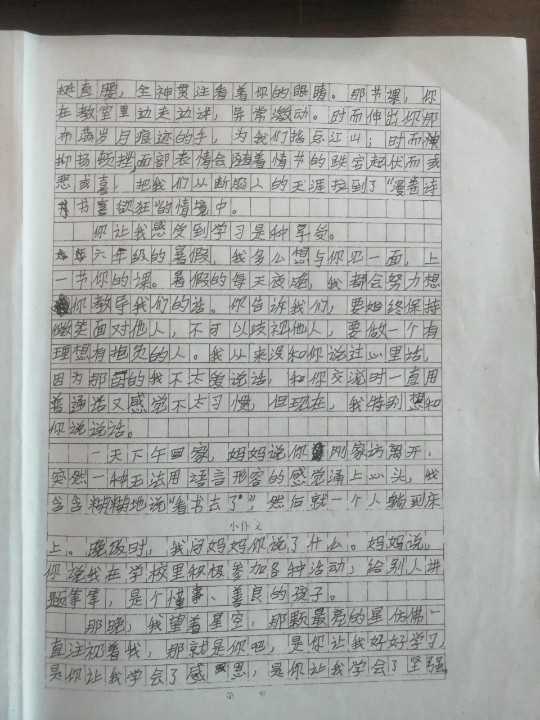 挺直腰，全神贯注看着你的眼睛。那节课，你
在教室里边走边讲，异常激动。时而伸出你那
布满岁月痕迹的手，为我们指点江山；时而
抑扬顿挫，面部表情会随着情节的跌宕起伏而或
悲或喜，把我们从断肠人的天涯拉到了“漫卷诗
书喜欲狂”的情境中。
你让我感觉到学习是种享受。
六年级的暑假，我多么想与你见一面，上
一节你的课。暑假的每天夜晚，我都会努力想
你教导我们的话。你告诉我们，要始终保持
微笑面对他人，不可以歧视他人，要做一个有
理想有抱负的人。我从来没和你说过心里话，
因为那时的我不太爱说话，和你交流时一直用
普通话又感觉不太习惯，但现在，我特别想和
你说说话。
一天下午回家，妈妈说你刚家访离开，
突然一种无法用语言形容的感觉涌上心头，我
含含糊糊地说“看书去了”，然后就一个人躺到床
小作文
上。晚饭时，我问妈妈你说了什么。妈妈说，
你说我在学校里积极参加各种活动，给别人讲
题等等，是个懂事、善良的孩子。
那晚，我望着星空，那颗最亮的星仿佛一
直注视着我，那就是你吧，是你让我好好学习，
是你让我学会了感恩，是你让我学会了坚强
第